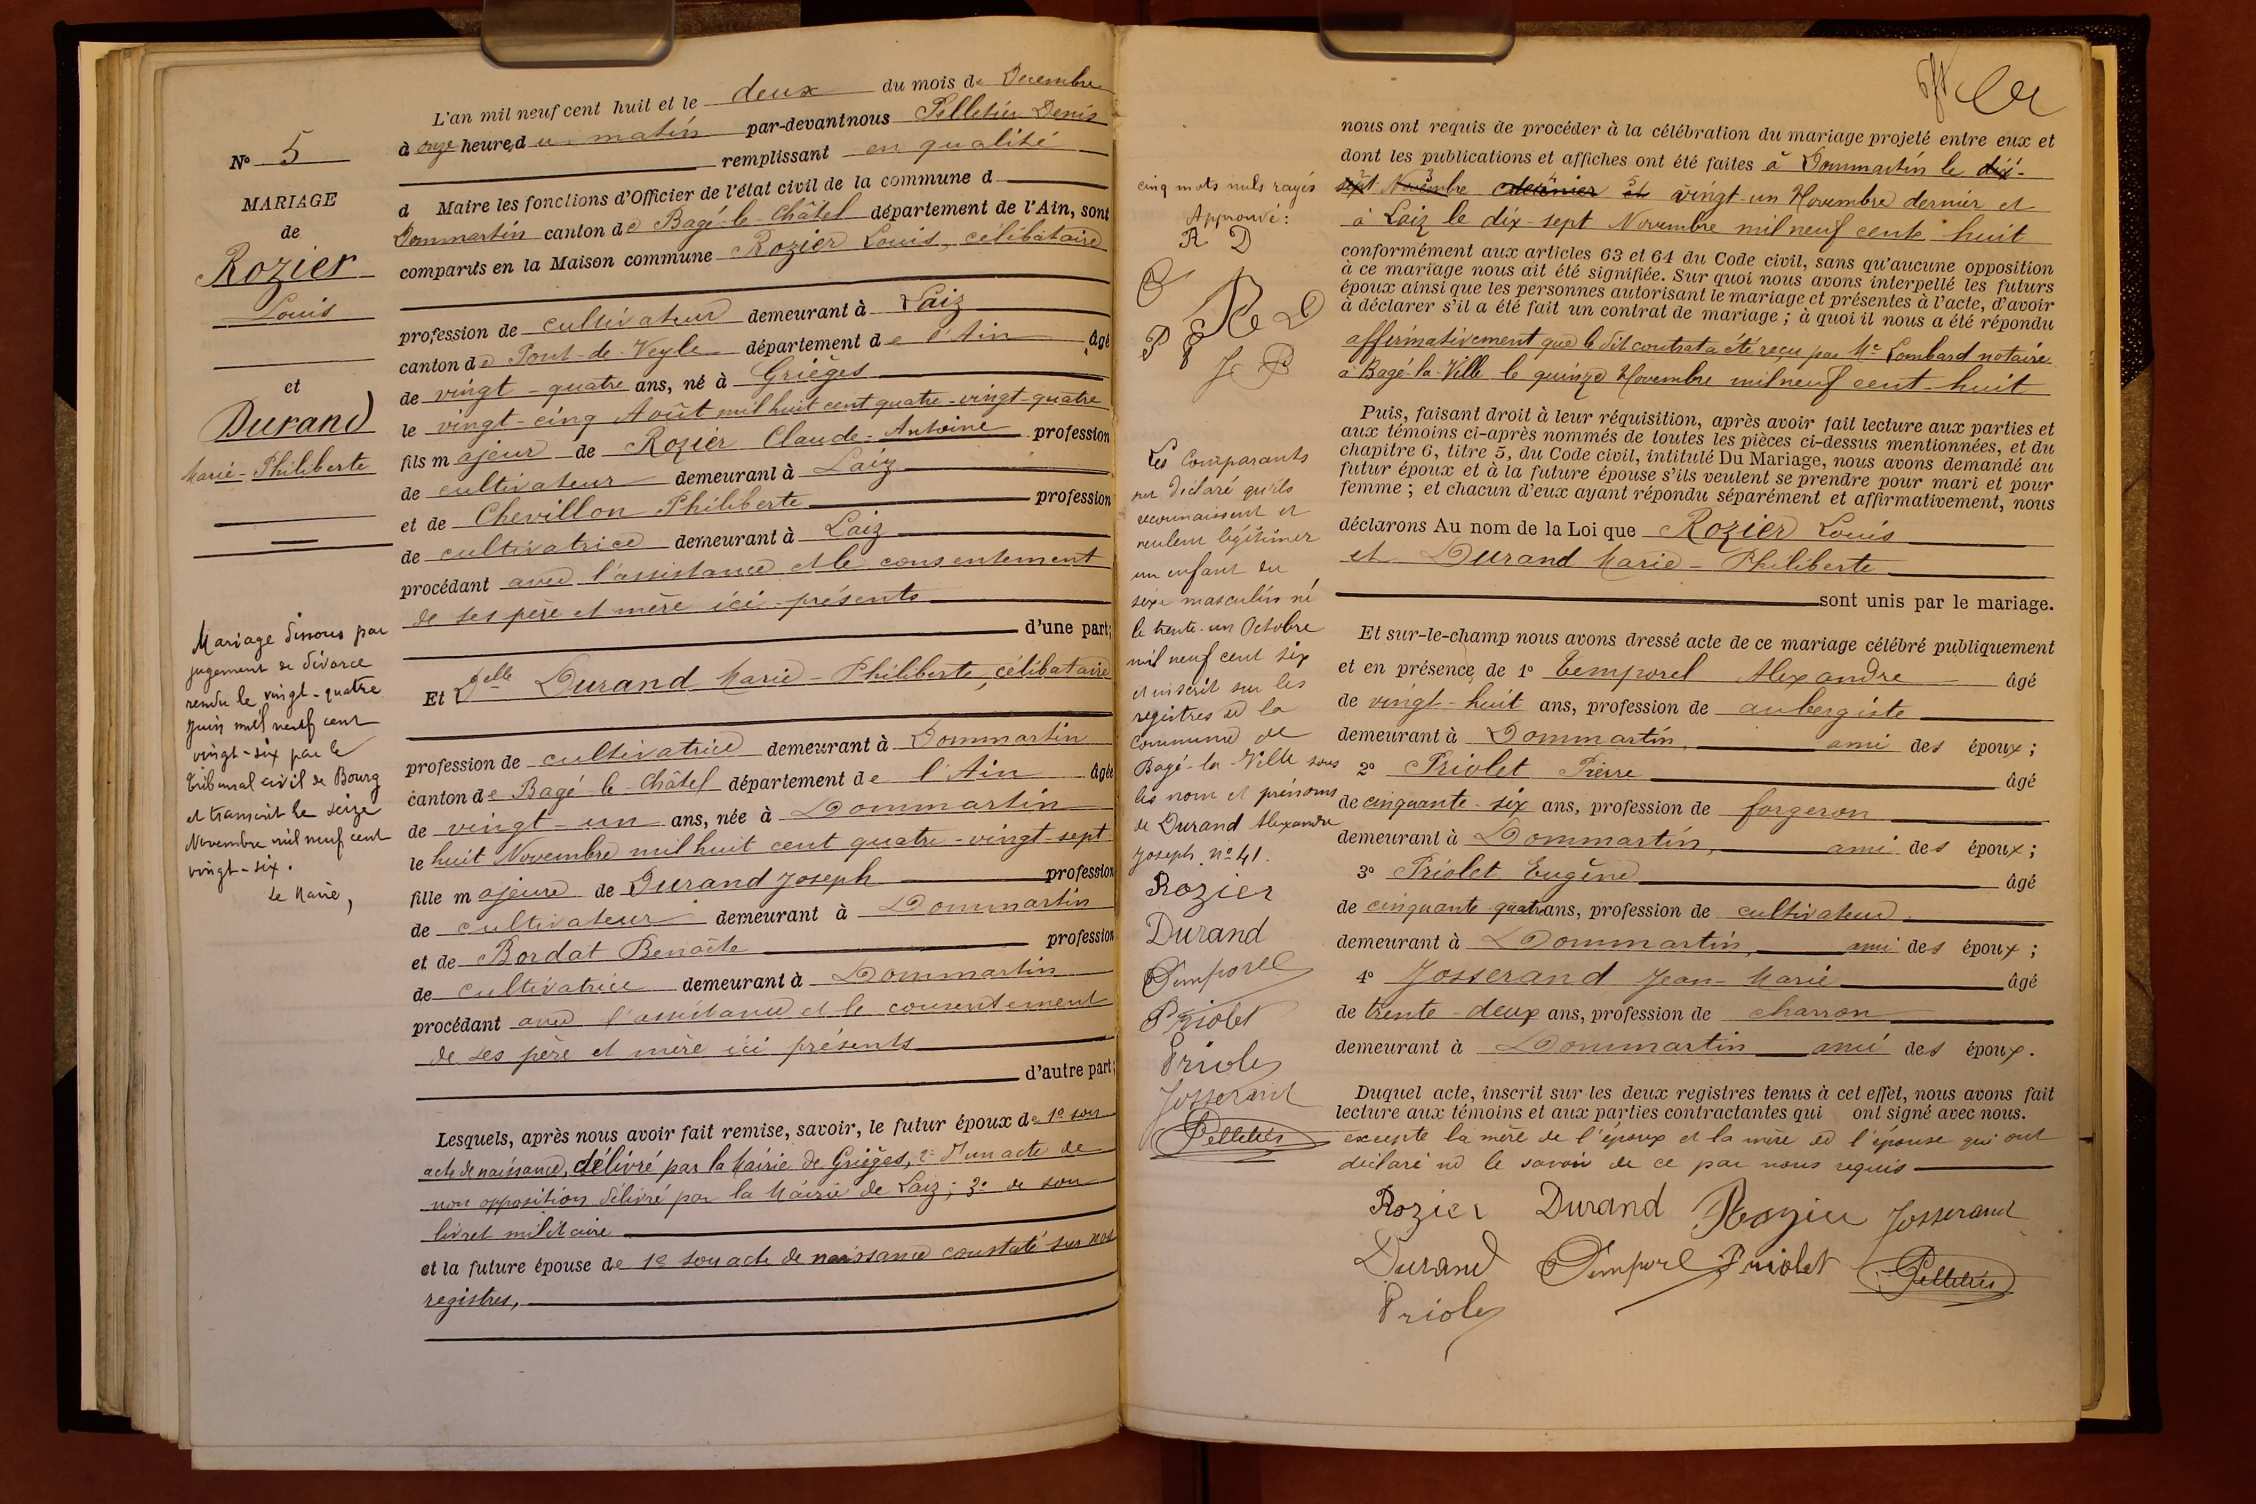 L'an mil neuf cent huit et le deux du mois de Decembre
à onze heures du matin par-devant nous Pelletier Denis
remplissant en qualité
d Maire les fonctions d'Officier de l'état civil de la commune d
Dommartin canton de Bagé-le-Châtel département de l'Ain, sont
comparus en la Maison commune Rozier Louis, célibataire
profession de cultivateur demeurant à Laiz
canton de Pont-de-Veyle département de l'Ain âgé
de vingt-quatre ans, né à Grièges
le vingt-cinq Août mil huit cent quatre-vingt-quatre
fils majeur de Rozier Claude-Antoine profession
de cultivateur demeurant à Laiz
et de Chevillon Philiberte profession
de cultivatrice demeurant à Laiz
procédant avec l'assistance et le consentement
de ses père et mère ici présents
d'une part;
Et Delle Durand Marie-Philiberte, célibataire
profession de cultivatrice demeurant à Dommartin
canton de Bagé-le-Châtel département de l'Ain âgée
de vingt-un ans, née à Dommartin
le huit Novembre mil huit cent quatre-vingt-sept
fille majeure de Durand Joseph profession
de cultivateur demeurant à Dommartin
et de Bordat Benoîte profession
de cultivatrice demeurant à Dommartin
procédant avec l'assistance et le consentement
de ses père et mère ici présents
d'autre part;
Lesquels, après nous avoir fait remise, savoir, le futur époux de 1º son
acte de naissance, délivré par la Mairie de Grièges, 2º d'un acte de
non opposition délivré par la Mairie de Laiz; 3º de son
livret militaire
et la future épouse de 1º son acte de naissance constaté sur nos
registres,
Nº 5
MARIAGE
de
Rozier
Louis
et
Durand
Marie-Philiberte
Mariage dissous par
jugement de divorce
rendu le vingt-quatre
Juin mil neuf cent
vingt-six par le
Tribunal civil de Bourg
et transcrit le seize
Novembre mil neuf cent
vingt-six.
Le Maire,
nous ont requis de procéder à la célébration du mariage projeté entre eux et
dont les publications et affiches ont été faites à Dommartin le dix-
sept Novembre dernier et vingt-un Novembre dernier et
à Laiz le dix-sept Novembre mil neuf cent huit
conformément aux articles 63 et 64 du Code civil, sans qu'aucune opposition
à ce mariage nous ait été signifiée. Sur quoi nous avons interpellé les futurs
époux ainsi que les personnes autorisant le mariage et présentes à l'acte, d'avoir
à déclarer s'il a été fait un contrat de mariage; à quoi il nous a été répondu
affirmativement que le dit contrat a été reçu par Me Lombard notaire
à Bagé-la-Ville le quinze Novembre mil neuf cent huit
Puis, faisant droit à leur réquisition, après avoir fait lecture aux parties et
aux témoins ci-après nommés de toutes les pièces ci-dessus mentionnées, et du
chapitre 6, titre 5, du Code civil, intitulé Du Mariage, nous avons demandé au
futur époux et à la future épouse s'ils veulent se prendre pour mari et pour
femme; et chacun d'eux ayant répondu séparément et affirmativement, nous
déclarons Au nom de la Loi que Rozier Louis
et Durand Marie-Philiberte
sont unis par le mariage.
Et sur-le-champ nous avons dressé acte de ce mariage célébré publiquement
et en présence de 1º Temporel Alexandre âgé
de vingt-huit ans, profession de aubergiste
demeurant à Dommartin, ami des époux;
2º Priolet Pierre âgé
de cinquante-six ans, profession de forgeron
demeurant à Dommartin, ami des époux;
3º Priolet Eugène âgé
de cinquante quatre ans, profession de cultivateur
demeurant à Dommartin, ami des époux;
4º Josserand Jean-Marie âgé
de trente-deux ans, profession de charron
demeurant à Dommartin ami des époux.
Duquel acte, inscrit sur les deux registres tenus à cet effet, nous avons fait
lecture aux témoins et aux parties contractantes qui ont signé avec nous.
excepté la mère de l'époux et la mère de l'épouse qui ont
déclaré ne le savoir de ce par nous requis
Rozier Durand Rozier Josserand
Durand Temporel Priolet Pelletier
Priolet
cinq mots nuls rayés
Approuvé:
R D
P
J P
Les Comparants
ont déclaré qu'ils
reconnaissent et
veulent légitimer
un enfant du
sexe masculin né
le trente-un Octobre
mil neuf cent six
et inscrit sur les
registres de la
commune de
Bagé-la-Ville sous
les nom et prénoms
de Durand Alexandre
Joseph, nº 41.
Rozier
Durand
Temporel
Priolet
Priolet
Josserand
Pelletier